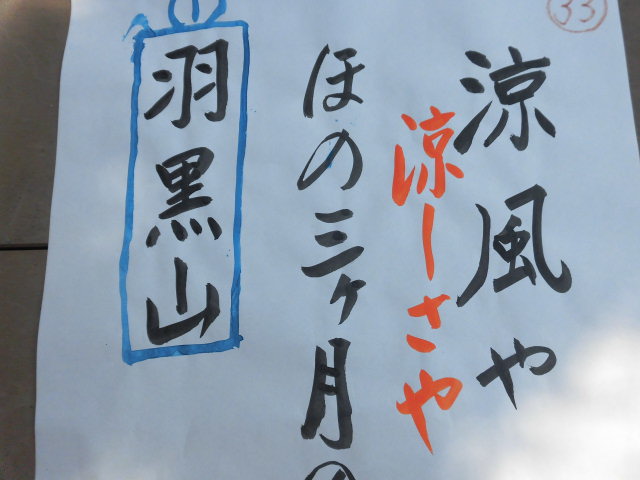 33
涼風や
涼しさや
ほの三ヶ月
羽黒山